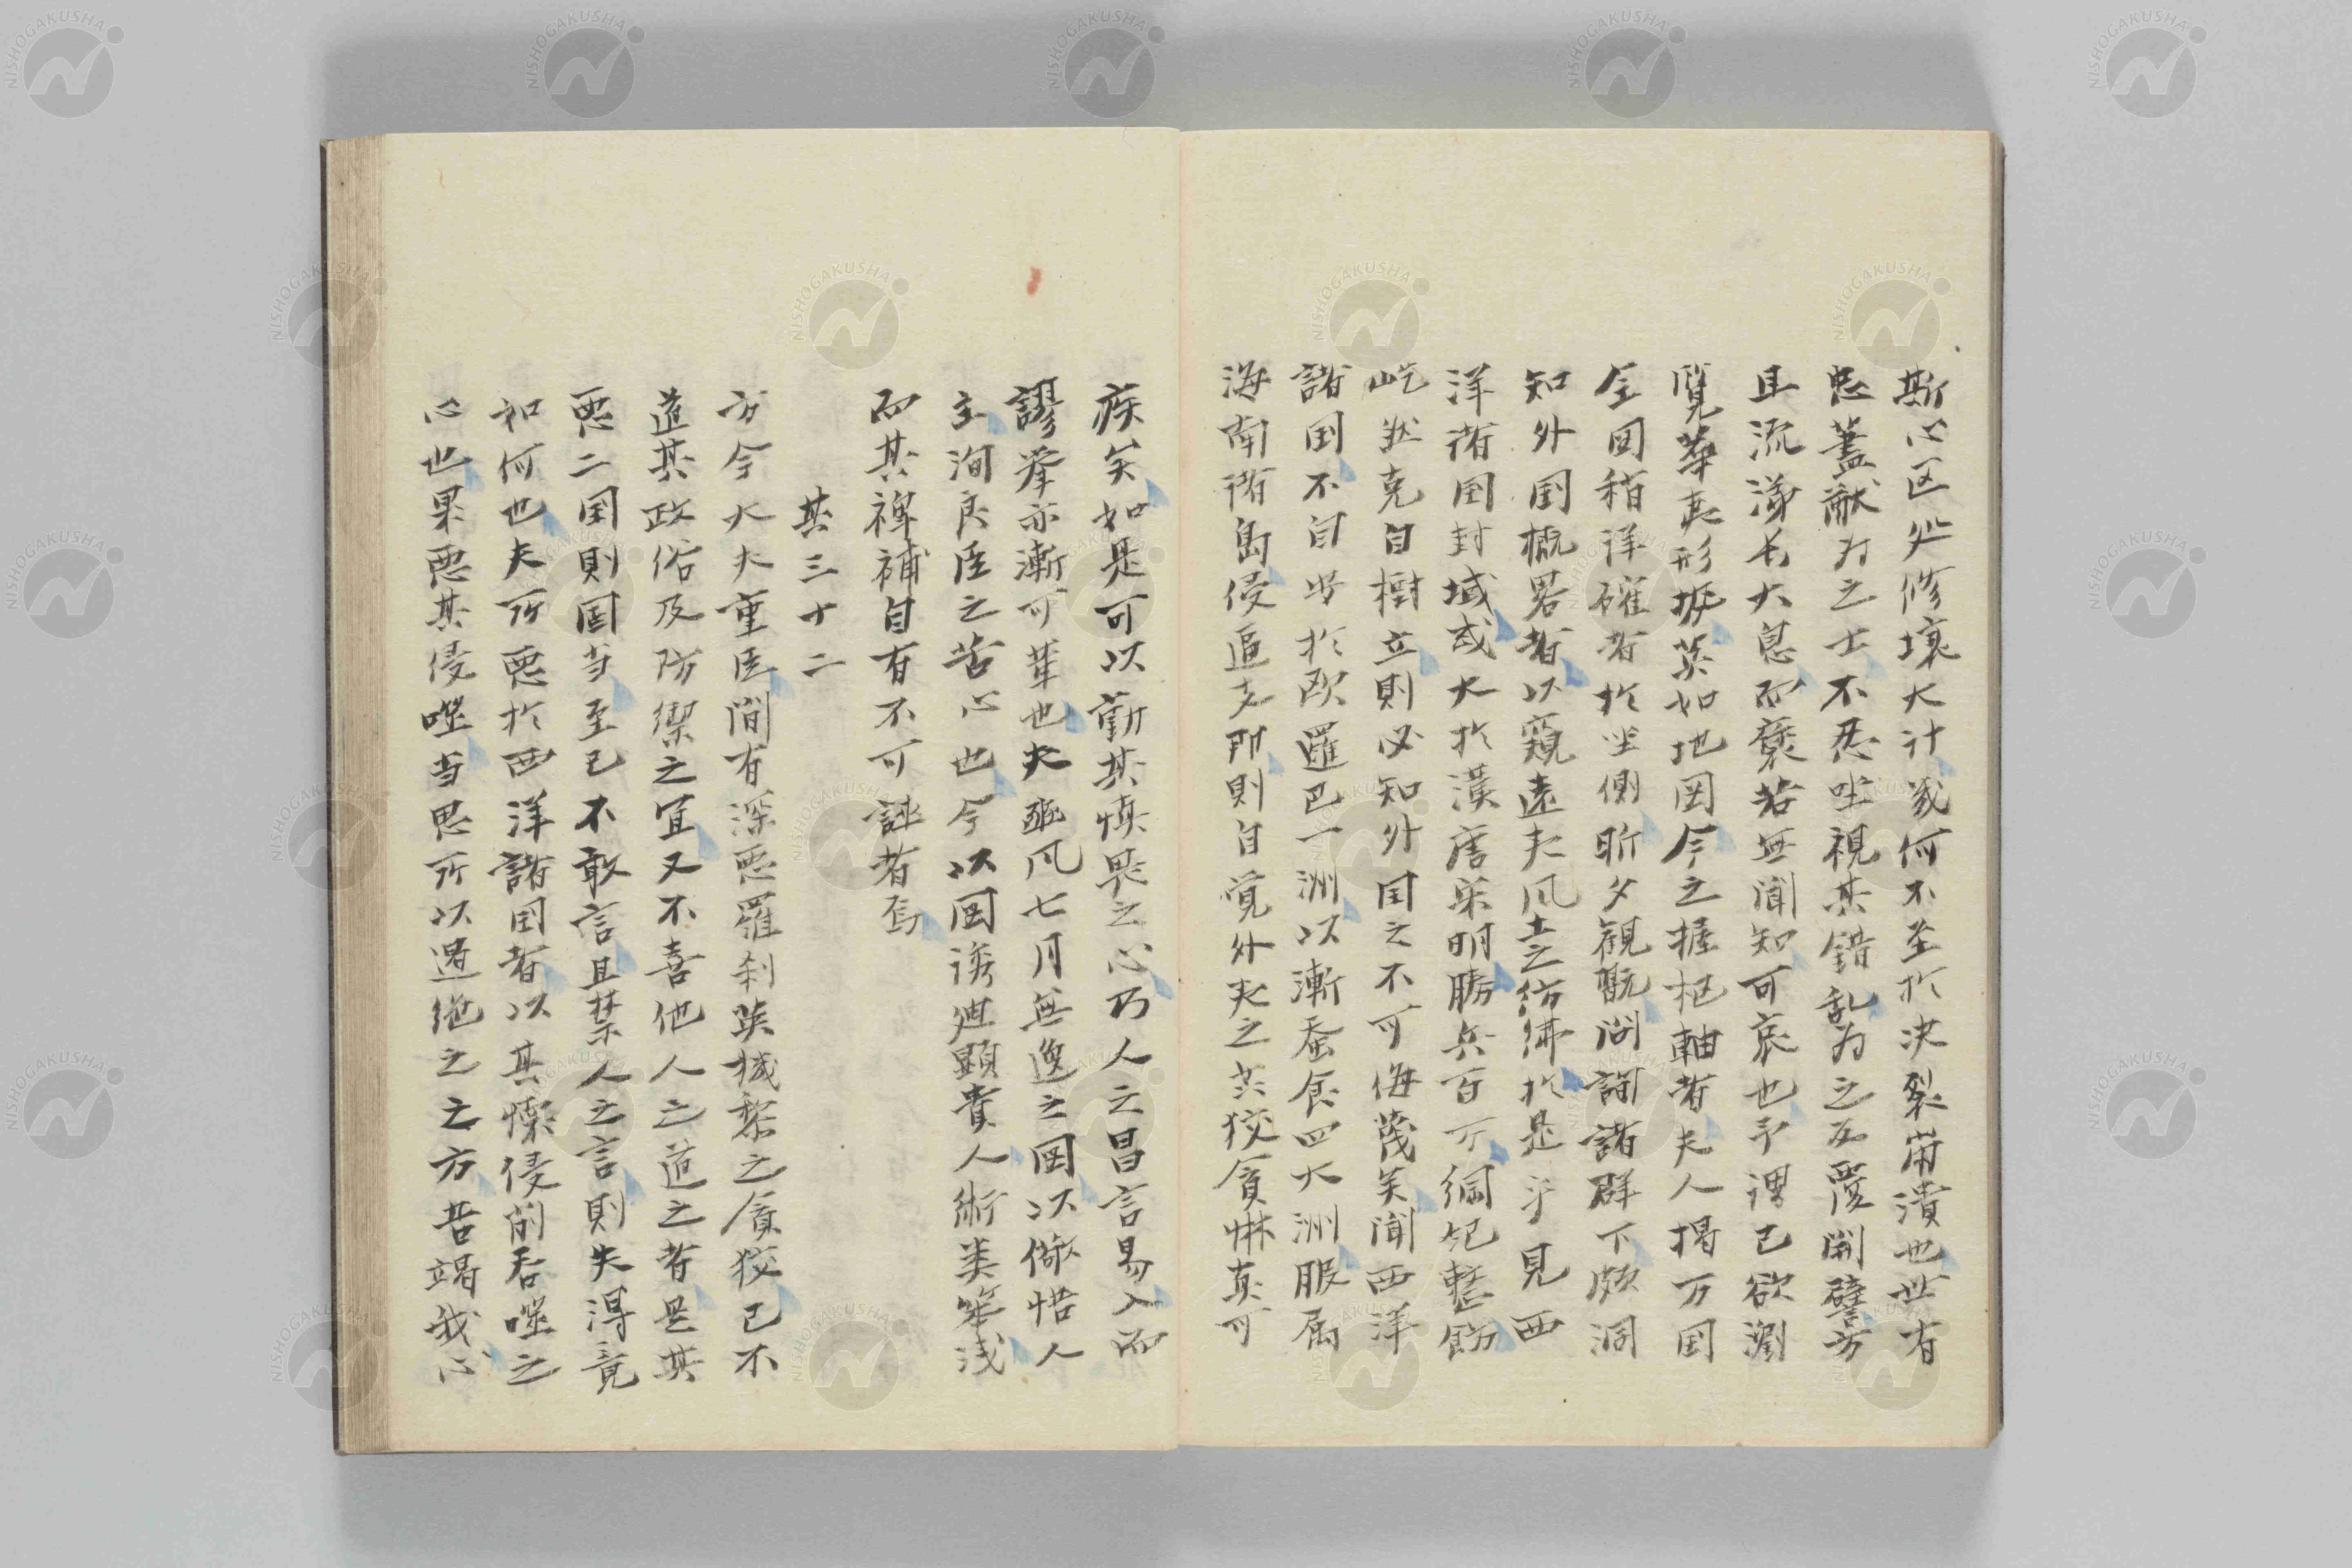 斯心区処修壌大計幾何不至於決裂崩潰也世有
忠蓋猷为之士不忍坐視其錯乱为之反覆開譬方
且流涕长大息而褎若無聞知可哀也予谓已欲瀏
覧華夷形埶莫如地図今之握枢軸者夫人揭万国
全図稍詳確者於坐側昕夕観翫问詢諸群下頗洞
知外国概畧者以窺遠夷风土之彷彿於是乎見西
洋諸国封域或大於漢唐宋明勝兵百万綱紀整飭
屹然克自樹立則必知外国之不可侮蔑矣聞西洋
諸国不自安於欧羅巴一洲以漸蚕食四大洲服属
海南諸島侵逼支那則自覚外夷之共狡貪惏真可
疾矣如是可以勧其慎畏之心乃人之昌言易入而
謬挙亦漸可革也夫豳风七月無逸之図以儆惜人
主洵良臣之苦心也今以図誘廸顕貴人術类笨浅
而其裨補自有不可誣者焉
其三十二
方今大夫重臣間有深悪羅刹英機黎之貪狡已不
道其政俗及防禦之宜又不喜他人之道之者是其
悪二国則固当至已不敢言且禁人之言則失得竟
如何也夫所悪於西洋諸国者以其慄侵削吞噬之
心也果悪其侵噬当思所以遏绝之之方苦竭我心
NISHOGAKUSHA